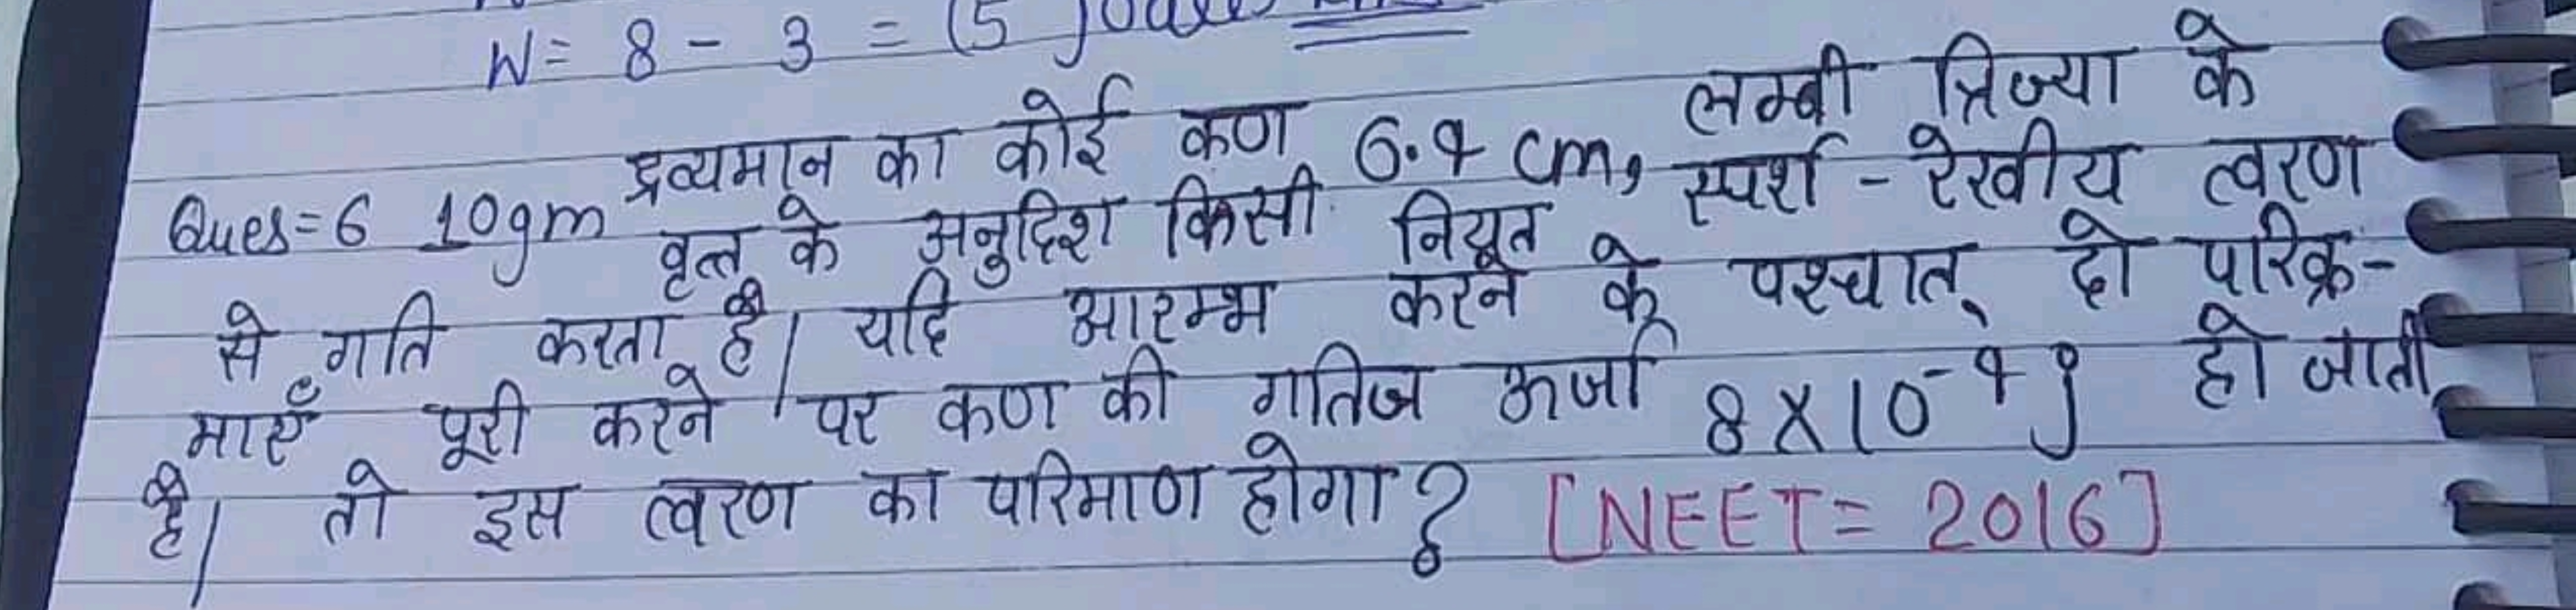 W = 8 - 3 = (5 Joule
Ques=6 10gm द्रव्यमान का कोई कण 6.4 cm, लम्बी त्रिज्या के
वृत्त के अनुदिश किसी नियत स्पर्श - रेखीय त्वरण
से गति करता है। यदि आरम्भ करने के पश्चात् दो परिक्र-
माएँ पूरी करने पर कण की गतिज ऊर्जा 8 X 10⁻⁴ J हो जाती
है। तो इस त्वरण का परिमाण होगा? [NEET = 2016]